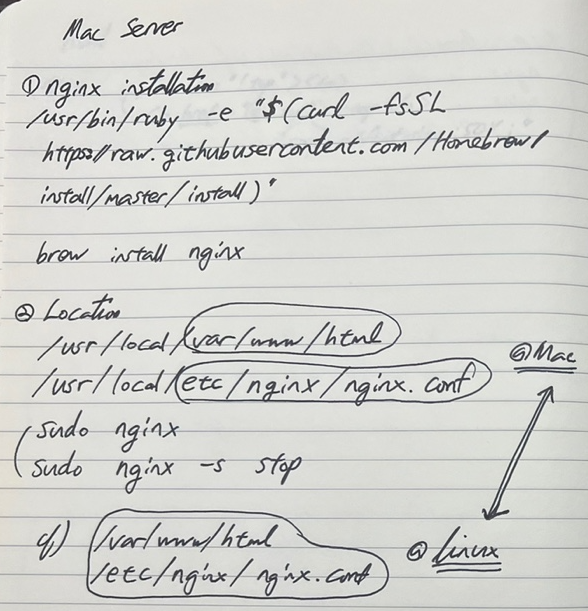 Mac Server
① nginx installation
/usr/bin/ruby -e "$(curl -fsSL
https://raw.githubusercontent.com/Homebrew/
install/master/install)"
brew install nginx
② Location
/usr/local/var/www/html
/usr/local/etc/nginx/nginx.conf
@Mac
sudo nginx
sudo nginx -s stop
cf) /var/www/html
/etc/nginx/nginx.conf
@Linux